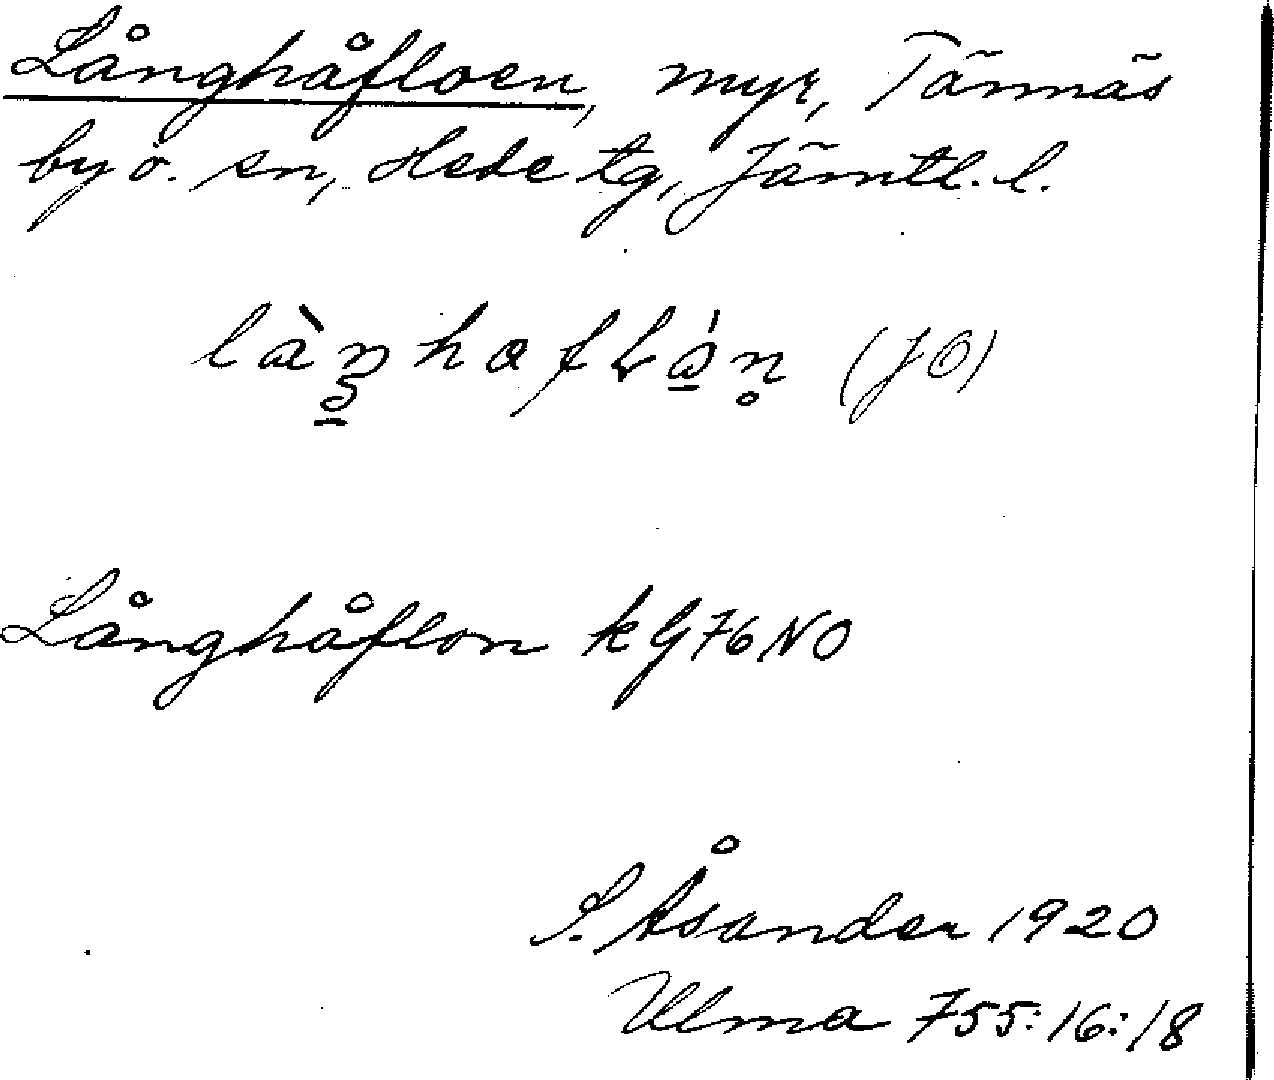 Långhåfloen, myr, Tännäs
by o. sn, Hede tg, Jämtl. l.
(JÖ)
Långhåflon k G76NO
S. Åsander 1920
Ulma 755:16:18